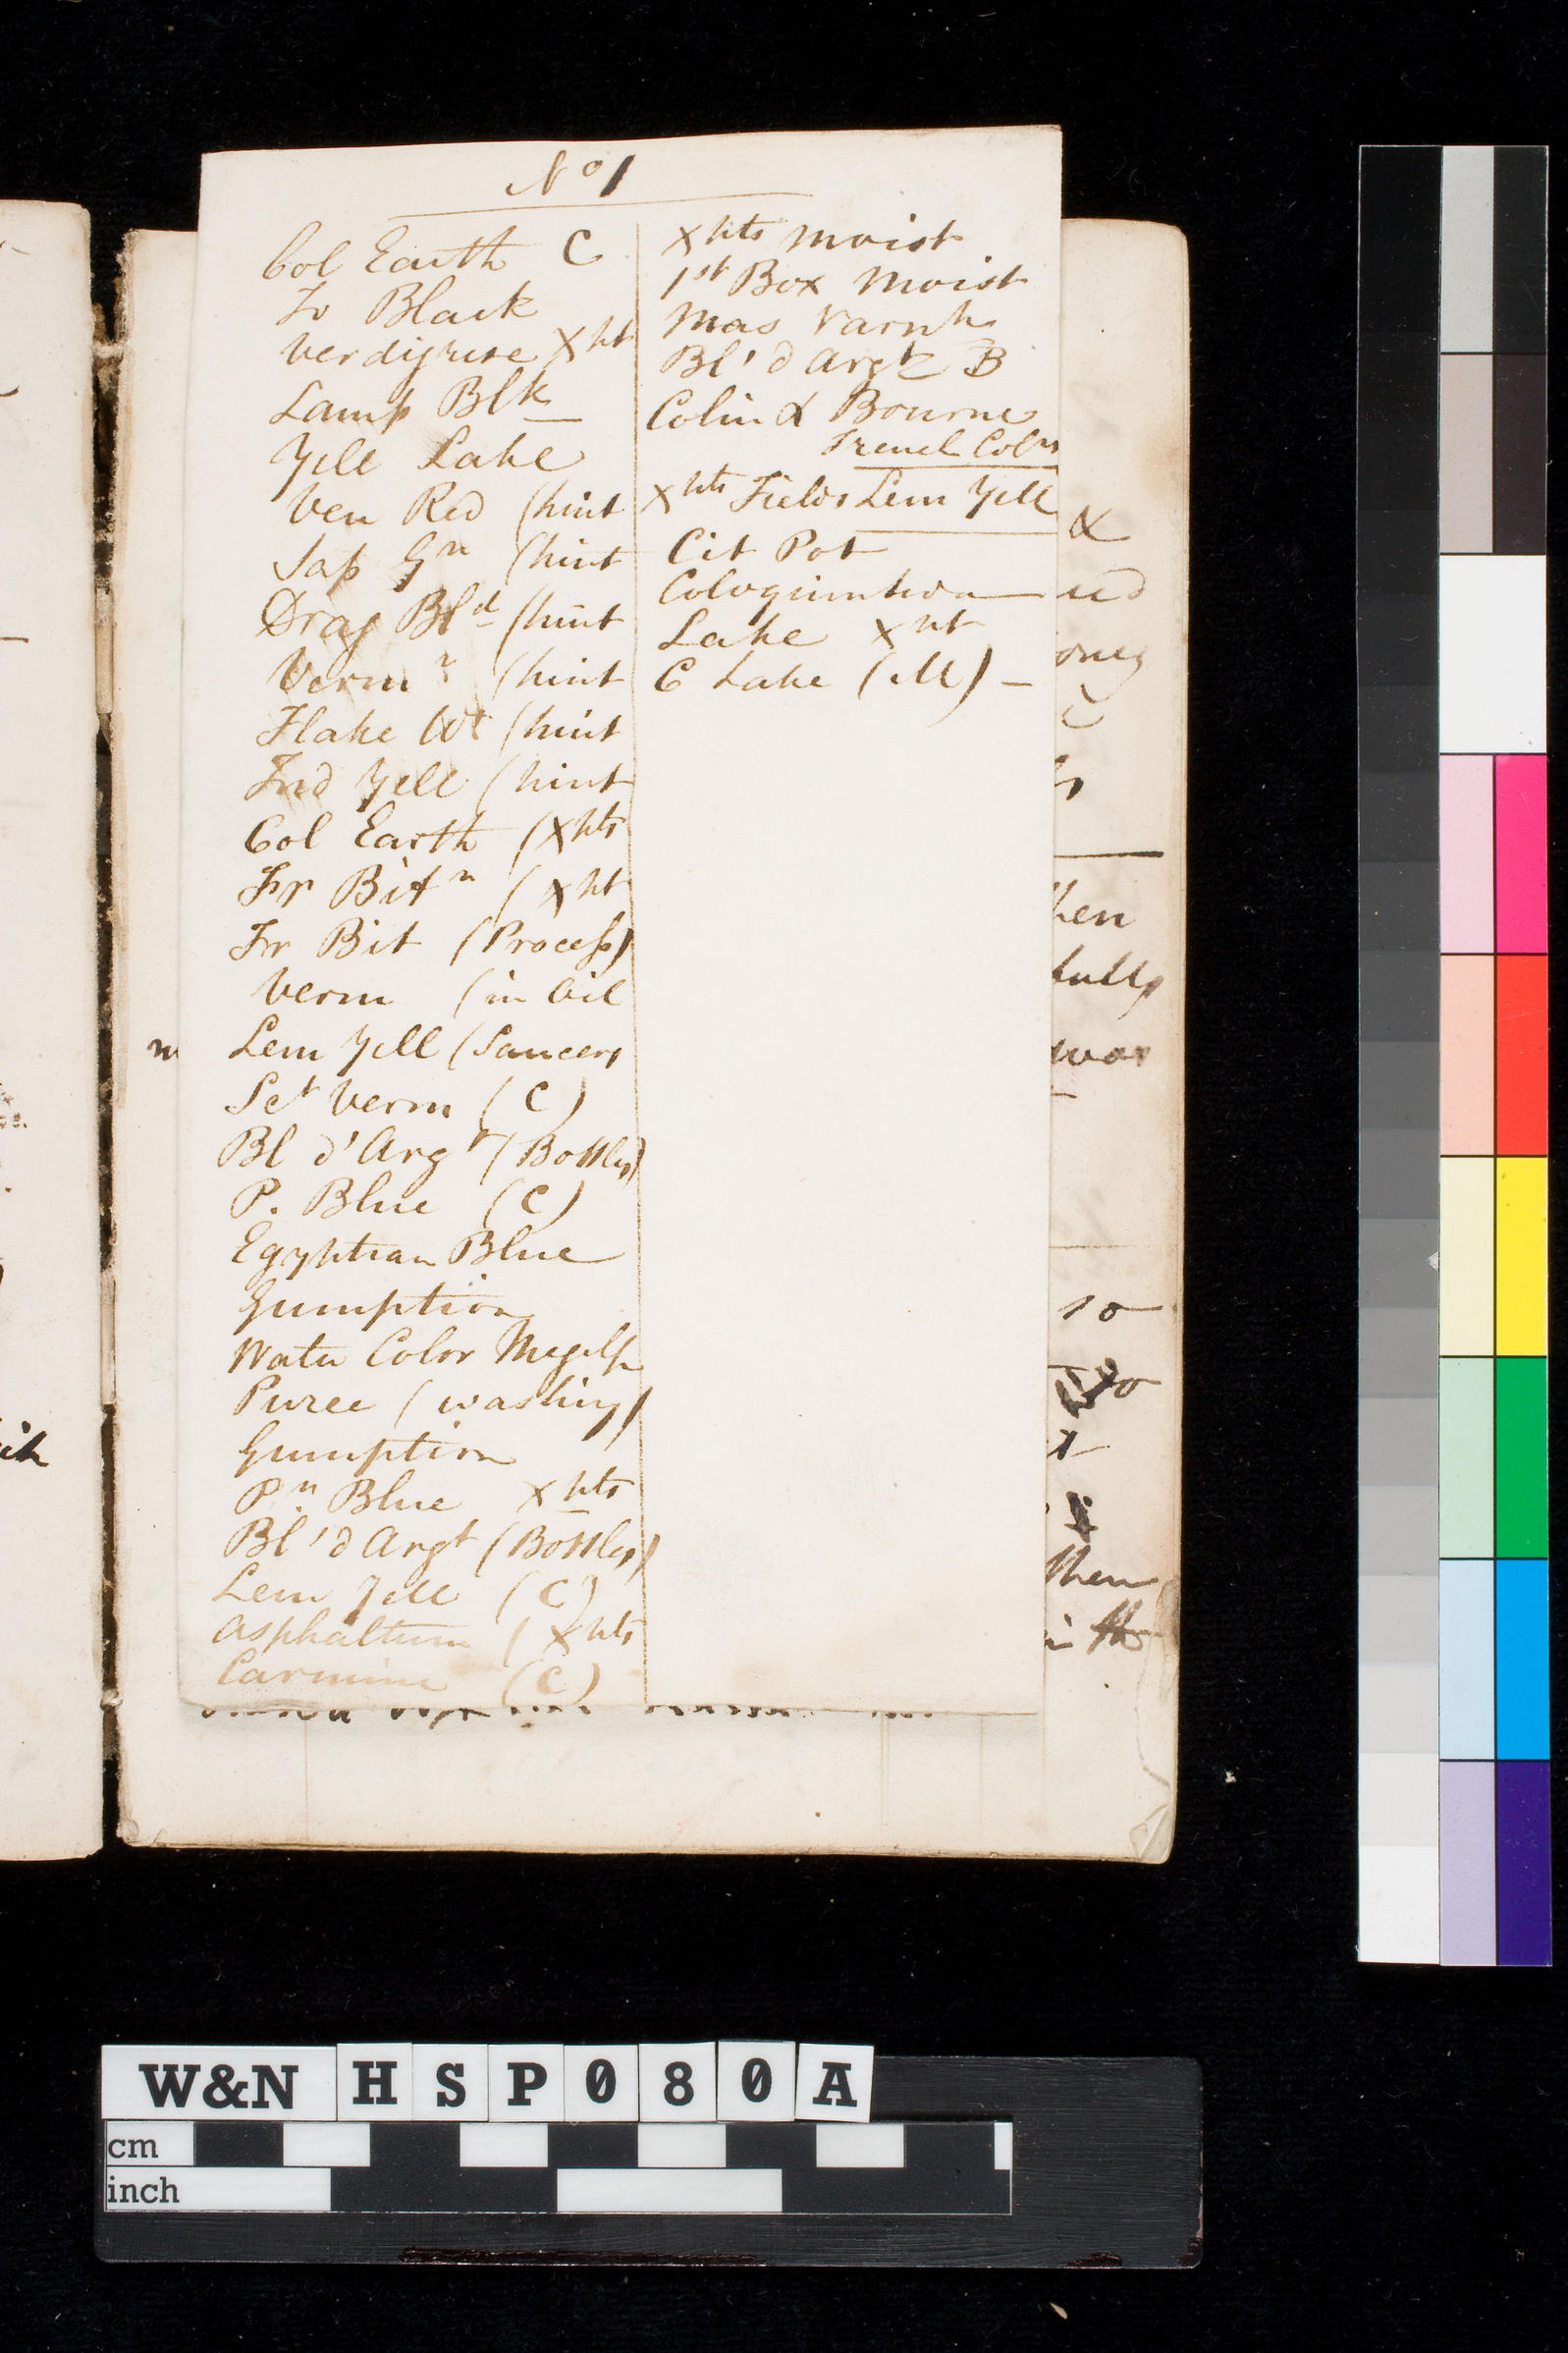 No 1
Col Earth C
Iv Black
Verdigrise Xht
Lamp Blk
Yell Lake
Ven Red (hint
Sap Gn (hint
Drag Bld (hint
Vermn (hint
Flake Wt (hint
Ind Yell (hint
Col Earth (Xhts
Fr Bitn (Xht
Fr Bit (Process)
Verm (in Oil
Lem Yell (Saucers
Sct Verm (C)
Bl d'Argt (Bottles)
P. Blue (C)
Egyptian Blue
Gumption
Water Color Megelp
Puree (washing)
Gumption
Pn Blue Xhts
Bl'd Argt (Bottles)
Lem Yell (C)
Asphaltum (Xhts
Carmine (C)
Xhts Moist
1st Box Moist
Mas Varnh
Bl'd Argt B
Colin & Bourne
French Cols
Xhts Fields Lem Yell
Cit Pot
Cologuintida
Lake Xht
C Lake (M) —
&
hen
fully
was
so
then
in the
W&N HSP080A
cm
inch